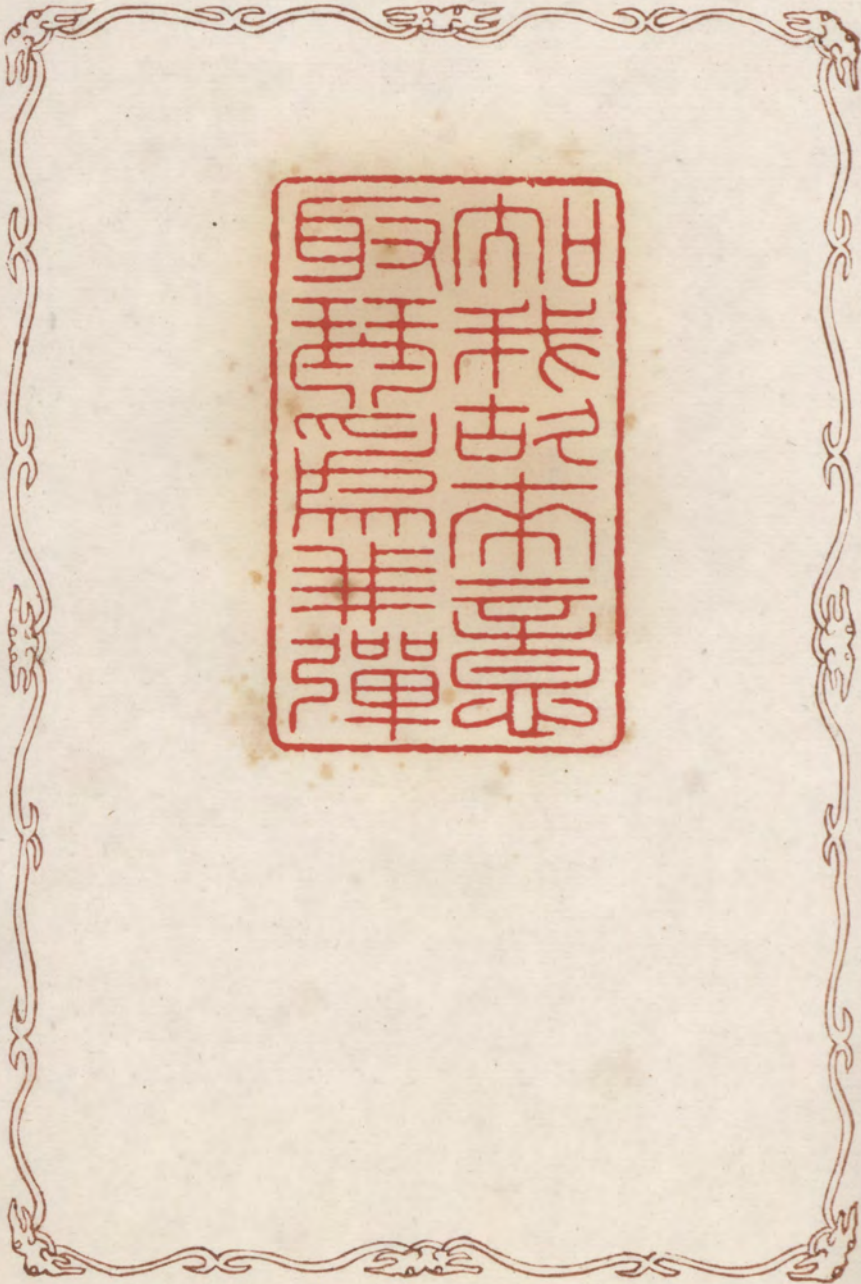 知我故來意
取琴為我彈